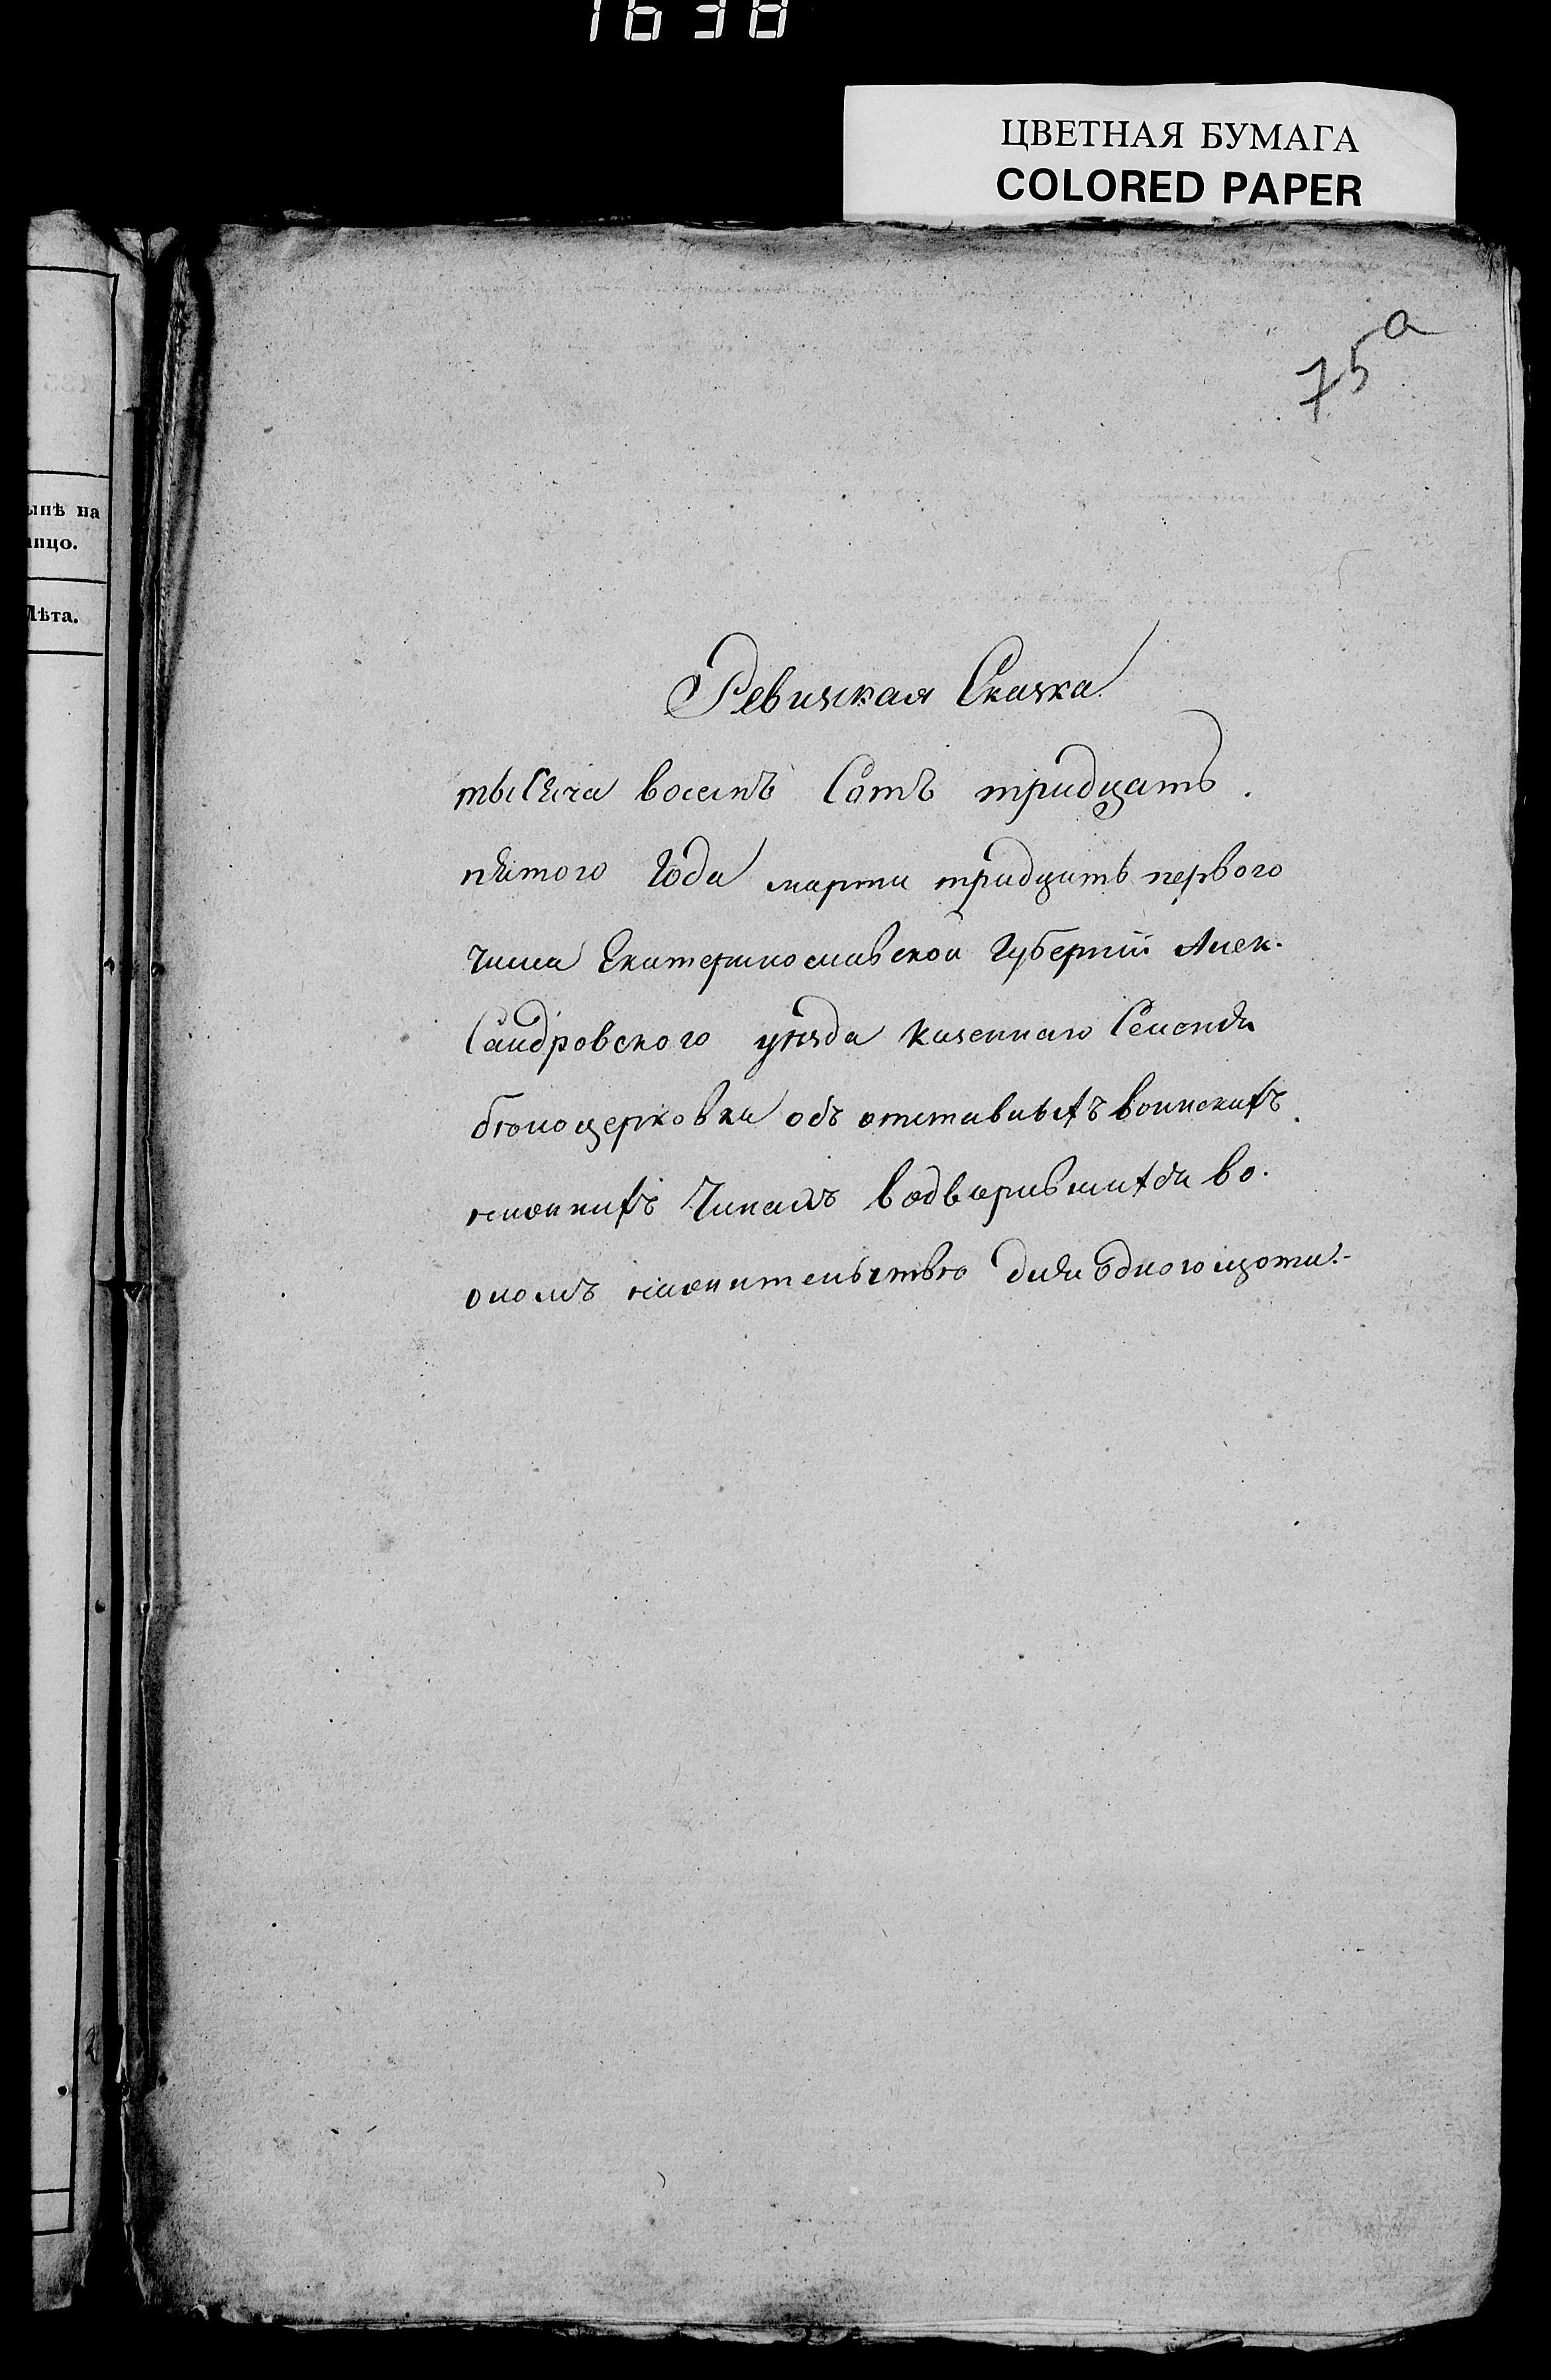 1638
ЦВЕТНАЯ БУМАГА
COLORED PAPER
75а
ынѣ на
ицо.
Лѣта.
Ревизкая Сказка
тысяча восемъ Сотъ тридцать
пятого Года марта тридцать первого
числа Екатеринославской Губернiи Алек-
Сандровского уѣзда казеннаго Селенiя
бѣлоцерковки объ отставныхъ воинскихъ
нижнихъ Чинахъ водворившихся во
ономъ жительство для одного щота.